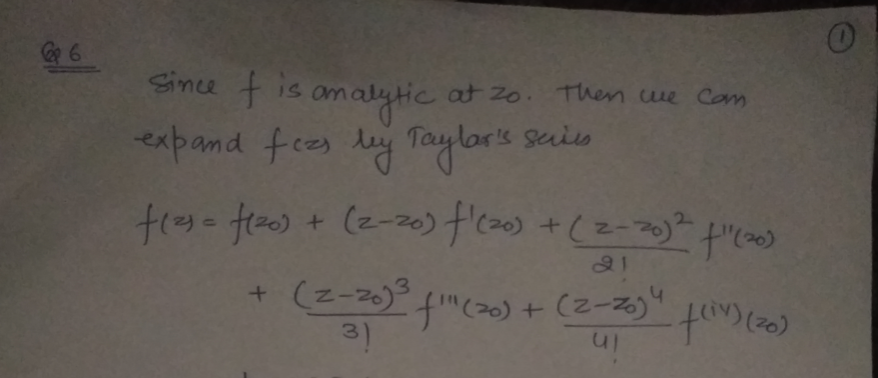 ①
Qp 6
Since f is analytic at z0. Then we can
expand f(z) by Taylor's series
f(z) = f(z0) + (z-z0) f'(z0) + (z-z0)²/2! f''(z0)
+ (z-z0)³/3! f'''(z0) + (z-z0)⁴/4! f(iv)(z0)